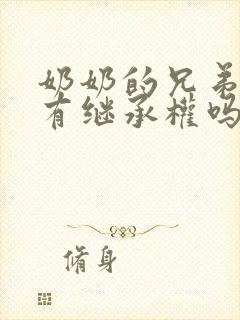 奶奶的兄弟
有继承權吗
脩身